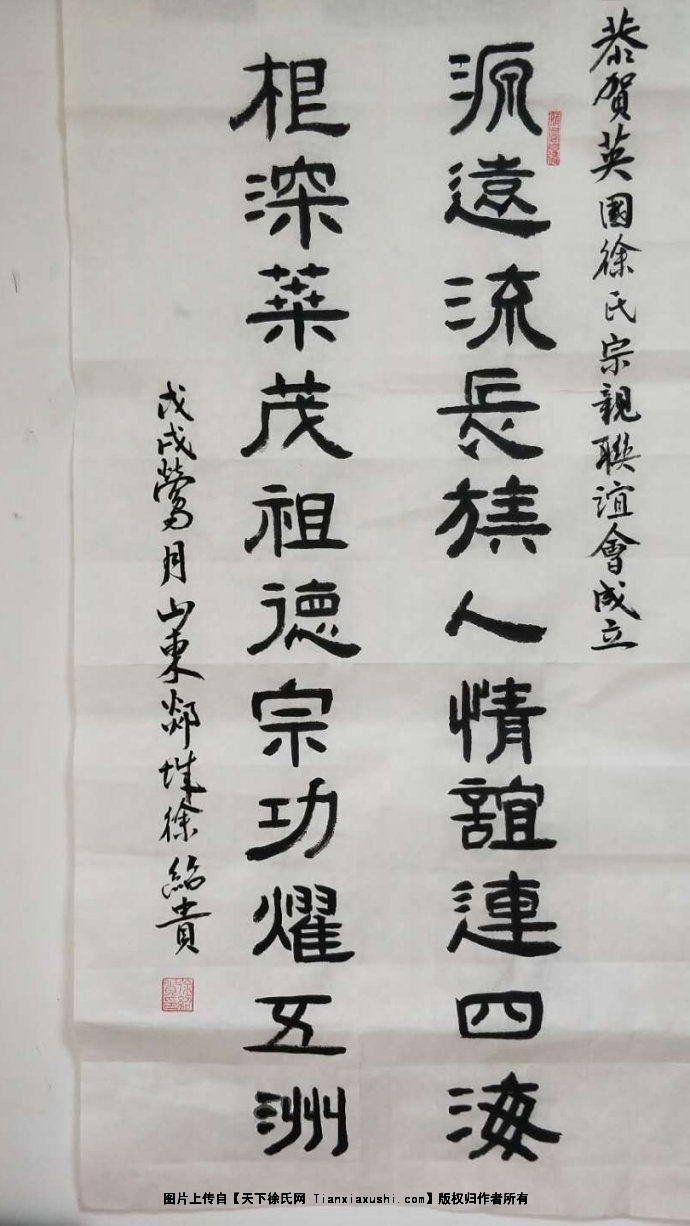 恭賀英國徐氏宗親聯誼會成立
源遠流長族人情誼連四海
根深葉茂祖德宗功耀五洲
戊戌鶯月山東鄰城徐紹貴
图片上传自【天下徐氏网 Tianxiaxushi.com】版权归作者所有